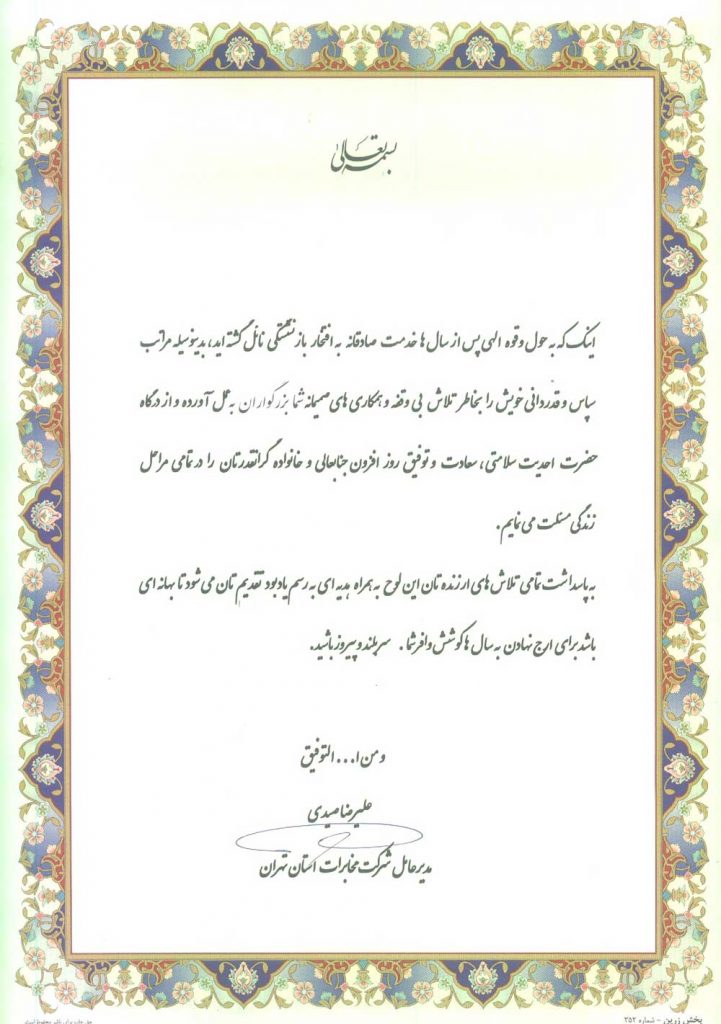 بسمه تعالی
اینک که به حول و قوه الهی پس از سال ها خدمت صادقانه به افتخار بازنشستگی نائل گشته اید، بدینوسیله مراتب
سپاس و قدردانی خویش را بخاطر تلاش بی وقفه و همکاری های صمیمانه شما بزرگواران به عمل آورده و از درگاه
حضرت احدیت سلامتی، سعادت و توفیق روز افزون جنابعالی و خانواده گرانقدرتان را در تمامی مراحل
زندگی مسئلت می نمایم.
به پاسداشت تمامی تلاش های ارزنده تان این لوح به همراه هدیه ای به رسم یادبود تقدیم تان می شود تا بهانه ای
باشد برای ارج نهادن به سال ها کوشش وافر شما. سربلند و پیروز باشید.
و من ا... التوفیق
علیرضا صیدی
مدیرعامل شرکت مخابرات استان تهران
پخش زرین - شماره ۳۵۲
حق چاپ برای ناشر محفوظ است